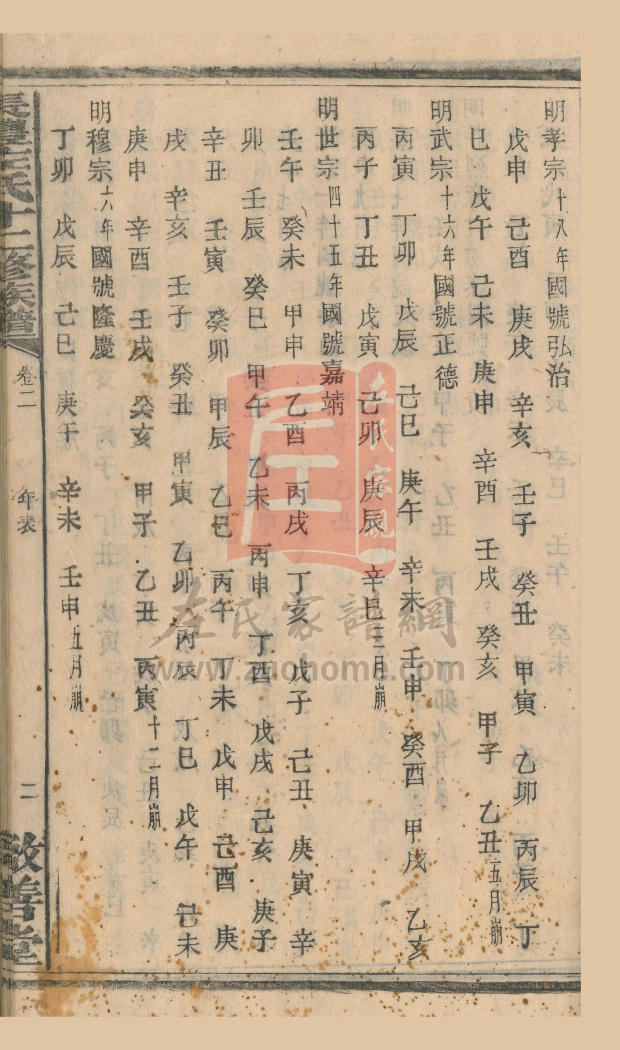 明孝宗十八年國號弘治
戊申 己酉 庚戌 辛亥 壬子 癸丑 甲寅 乙卯 丙辰 丁
巳 戊午 己未 庚申 辛酉 壬戌 癸亥 甲子 乙丑五月崩
明武宗十六年國號正德
丙寅 丁卯 戊辰 己巳 庚午 辛未 壬申 癸酉 甲戌 乙亥
丙子 丁丑 戊寅 己卯 庚辰 辛巳三月崩
明世宗四十五年國號嘉靖
壬午 癸未 甲申 乙酉 丙戌 丁亥 戊子 己丑 庚寅 辛
卯 壬辰 癸巳 甲午 乙未 丙申 丁酉 戊戌 己亥 庚子
辛丑 壬寅 癸卯 甲辰 乙巳 丙午 丁未 戊申 己酉 庚
戌 辛亥 壬子 癸丑 甲寅 乙卯 丙辰 丁巳 戊午 己未
庚申 辛酉 壬戌 癸亥 甲子 乙丑 丙寅十二月崩
明穆宗六年國號隆慶
丁卯 戊辰 己巳 庚午 辛未 壬申五月崩
氏十二修族譜 卷二 年表 二 敬善堂
左氏家譜網
www.zuohome.com